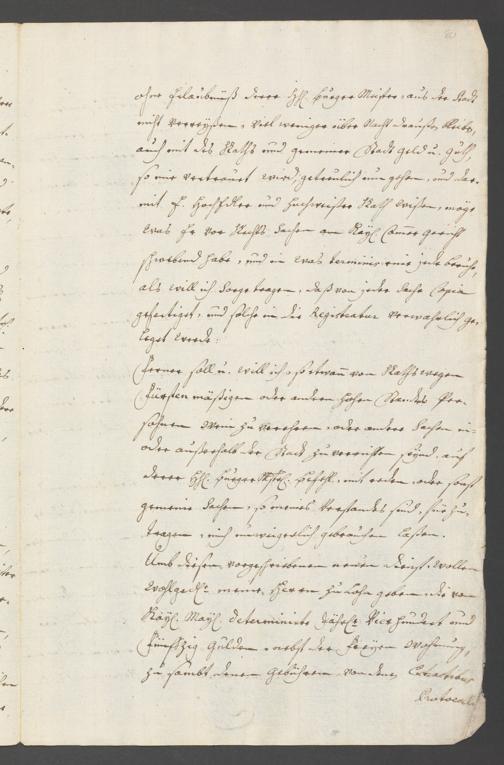 ohne Erlaubnüß derer H. Burger Meister, aus der Stadt
nicht verreyßen, viel weniger über Nacht draußen bleibe,
auch mit des Raths und gemeiner Stadt geld u. guth,
so mir vertrauet wird getreulich umgehen, und da-
mit E. HochEdler und Hochweißer Rath wißen, möge
was Er vor Rechts Sachen am Kayl. Cammergericht
schwebend habe, und in was terminis eine jede beruhe,
als will ich Sorge tragen, daß von jeder Sache Copia
gefertiget, und solche in die Registratur verwahrlich ge-
leget werde.
Ferner soll u. will ich, so etwann von Raths wegen
Fürstenmäßigen oder andern hohen Standes Per-
sohnen Wein zu verehren, oder andere Sachen in-
oder außerhalb der Stadt zu verrichten seynd, auf
derer H. Burger Mstr. befehl, mit reden, oder sonst
gemeine Sachen, so meines Verstandes sind, für zu-
tragen, mich unweigerlich gebrauchen laßen.
Umb diesen vorgeschriebenen meinen dienst, wollen
Wohlged. meine Herren zu Lohn geben, die von
Kayl. Mayt. determinirte Jährl. Vierhundert und
Fünffzig Gulden, nebst der freyen Wohnung,
zu sambt denen Gebühren von denen Extractibus
Protocoll